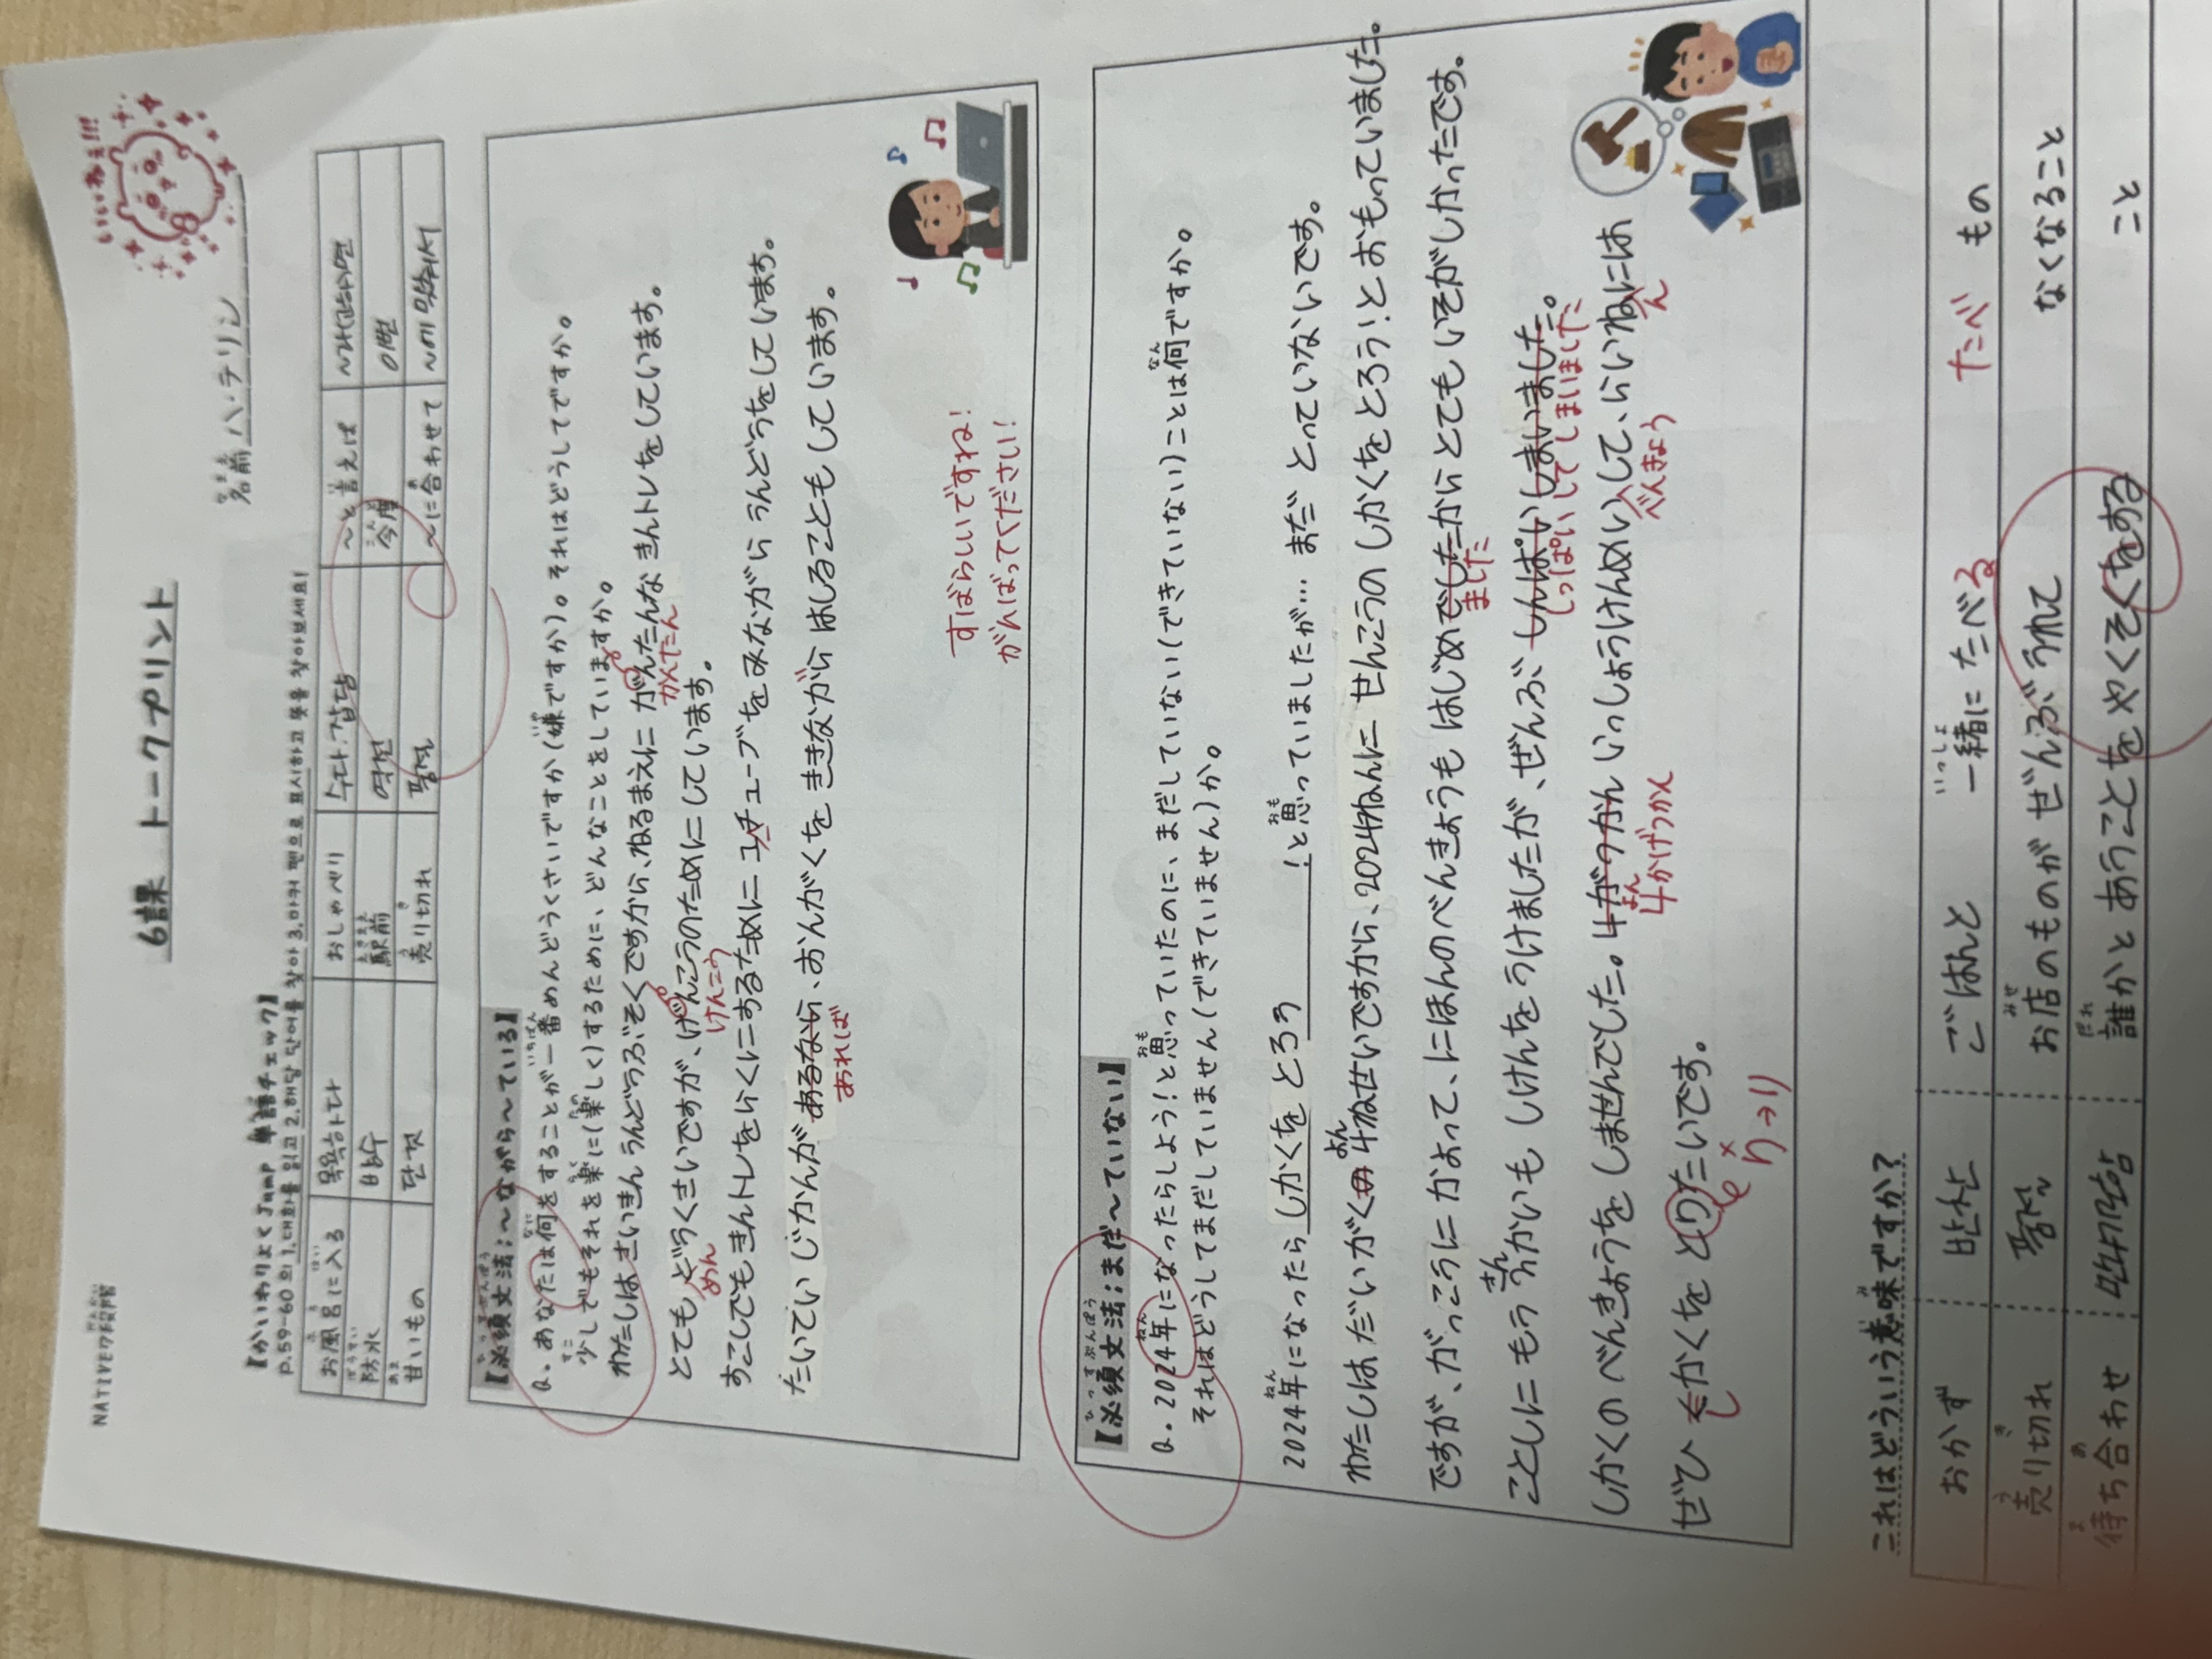 NATIVEワ段階
いいねぇ!!!
6課 トークプリント
名前 ハ・テリン
【かいわりよくJump 単語チェック】
P.59-60의 1.대화를 읽고 2.해당 단어를 찾아 3.마커 펜으로 표시하고 뜻을 찾아보세요!
お風呂に入る 목욕하다 おしゃべり 수다.잡담 ～と言えば ~라고하자면
防水 방수 駅前 역전 今度 이번
甘いもの 단것 売り切れ 품절 ～に合わせて ~에 맞춰서
【必須文法:～ながら～ている】
Q. あなたは何をすることが一番めんどうくさいですか(嫌ですか)。それはどうしてですか。
少しでもそれを楽に(楽しく)するために、どんなことをしていますか。
わたしは さいきん うんどうぶそくですから、ねるまえに がんたんな きんトレをしています。
かんたん
とても どうくさいですが、げんこうのために しています。
めん
けんこう
すこしでも きんトレを らくにするために ユチューブを みながら うんどうをしています。
たいてい じかんが あるなら、おんがくを ききながら はしることも しています。
あれば
すばらしいですね!
がんばってください!
【必須文法:まだ～ていない】
Q. 2024年になったらしよう!と思っていたのに、まだしていない(できていない)ことは何ですか。
それはどうしてまだしていません(できていません)か。
2024年になったら しかくを とろう !と思っていましたが… まだ とっていないです。
わたしは だいがく 4ねせいですから、2024ねんに せんこうの しかくを とろう!と おもっていました。
よん
ですが、がっこうに かよって、にほんのべんきょうも はじめでしたから とても いそがしかったです。
ました
ことしに もう 3かいも しけんを うけましたが、ぜんぶ しんぱい しまいました。
さん
しっぱいして しまいました
しかくの べんきょうを しませんでした。4がつかん いっしょうけんめい して、らいねには
よん
4かげつかん
べんきょう
ん
ぜひ そかくを とりたいです。
し
り→り
これはどういう意味ですか?
おかず 반찬 ごはんと 一緒に たべる たべ もの
売り切れ 품절 お店のものが ぜんぶ うれて なくなること
待ち合わせ 만나기로함 誰かと あうことを やくそくをする こと